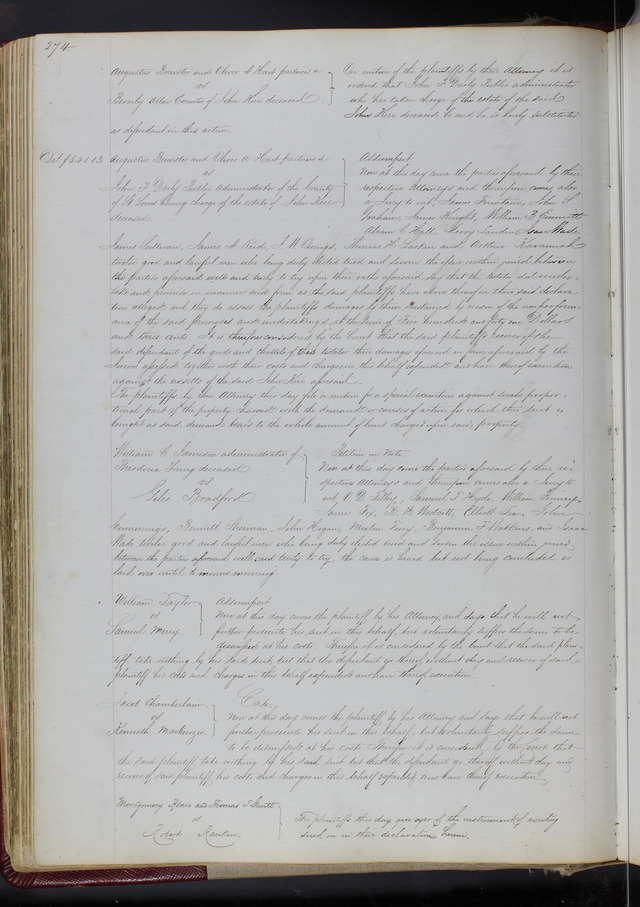 274
Augustus Brewster and Oliver A Hart partners &c
vs
Beverly Allen Curator of John Kerr deceased
On motion of the plaintiffs by their Attorney it is
ordered that John F Darby Public administrator
who has taken charge of the estate of the said
John Kerr deceased be and he is hereby substituted
as defendant in this action.
Augustus Brewster and Oliver A Hart partners &
vs
John F Darby Public Administrator of the County
of St Louis having charge of the estate of John Kerr
deceased.
Assumpsit
Now at this day come the parties aforesaid by their
respective Attorneys and thereupon comes also
a Jury to wit, James Fountain, John S
James Wright, William
Abram C Hall, Landon, Isaac Wade
James Sullivan, James M Reid, J W Thomas H Larkin and Arthur Kavanaugh
twelve good and lawful men who being duly elected tried and sworn the issue within joined between
the parties aforesaid well and truly to try upon their oaths aforesaid say that the testator did under-
take and promise in manner and form as the said plaintiffs have above therefor in their said declara-
tion alleged and they do assess the plaintiffs damages by them sustained by reason of the nonperform-
ance of the said promises and undertakings at the Sum of Five hundred and forty one Dollars
and three cents. It is therefore considered by the Court that the said plaintiffs recover of the
said defendant of the goods and chattels of his testator their damages aforesaid in form aforesaid by the
Jurors assessed together with their costs and charges in this behalf expended and have thereof execution
against the assetts of the said John Kerr aforesaid.
The plaintiffs by their Attorney this day file a motion for a special execution against such propor-
tional part of the property charged with the demand or causes of action for which this suit is
brought as said demand bears to the whole amount of liens charged upon said property.
William C Jamison administrator of
Theoderia deceased
vs
Giles Bradford
Petition in Note
Now at this day come the parties aforesaid by their re-
spective Attorneys and thereupon comes also a Jury to
wit, O D Filley, Samuel T Hyde, William
James Fox, R H Elliott Lee, John
Cummings, Sherman, John Hogan, Benjamin F Watkins, and Isaac
Wade twelve good and lawful men who being duly elected tried and sworn the issue within joined
between the parties aforesaid well and truly to try, the cause is heard but not being concluded is
laid over until tomorrow morning
William Taylor
vs
Samuel Merry
Assumpsit
Now at this day comes the plaintiff by his Attorney and says that he will not
further prosecute his suit in this behalf, but voluntarily suffers the same to be
dismissed at his costs. Therefore it is considered by the Court that the said plain-
tiff take nothing by his said suit, but that the defendant go thereof without day and recover of said
plaintiff his costs and charges in this behalf expended and have thereof execution.
Jacob Chamberlain
vs
Kenneth Mackenzie
Case,
Now at this day comes the plaintiff by his Attorney and says that he will not
further prosecute his suit in this behalf, but voluntarily suffers the same
to be dismissed at his costs Therefore it is considered by the Court that
the said plaintiff take nothing by his said suit but that the defendant go thereof without day and
recover of said plaintiff his costs and charges in this behalf expended and have thereof execution
Montgomery Blair and Thomas T Gantt
vs
Robert Rankin.
The plaintiffs this day give oyer of the instrument of writing
sued on in their declaration herein.